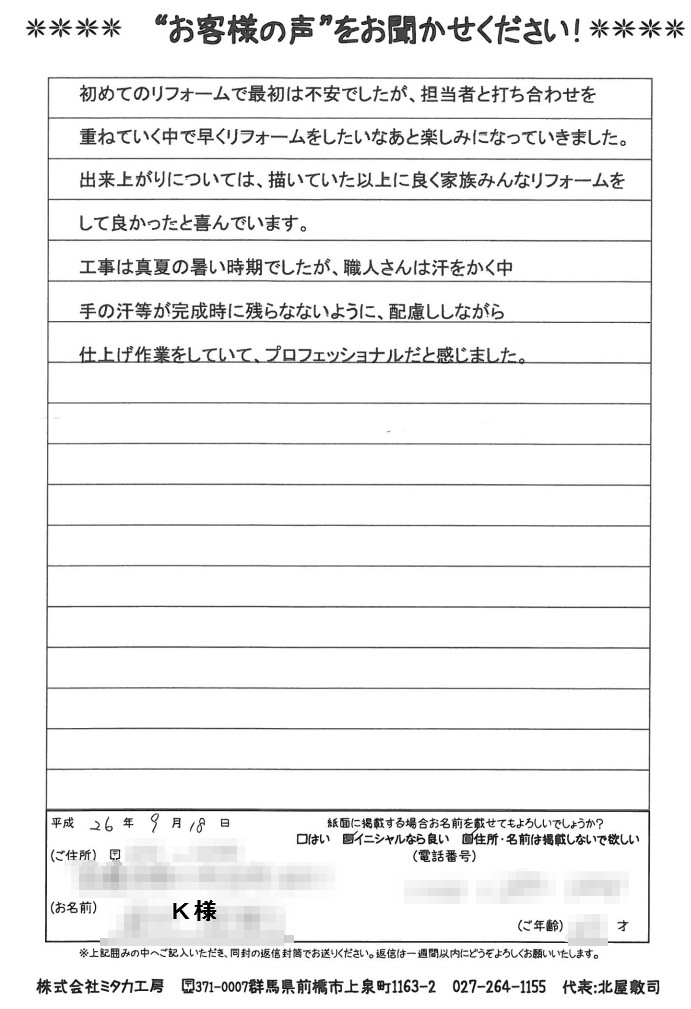 ＊＊＊＊ “お客様の声”をお聞かせください！＊＊＊＊
初めてのリフォームで最初は不安でしたが、担当者と打ち合わせを
重ねていく中で早くリフォームをしたいなあと楽しみになっていきました。
出来上がりについては、描いていた以上に良く家族みんなリフォームを
して良かったと喜んでいます。
工事は真夏の暑い時期でしたが、職人さんは汗をかく中
手の汗等が完成時に残らなないように、配慮ししながら
仕上げ作業をしていて、プロフェッショナルだと感じました。
平成 26 年 9 月 18 日
紙面に掲載する場合お名前を載せてもよろしいでしょうか？
□はい ☑イニシャルなら良い ☑住所・名前は掲載しないで欲しい
(ご住所) 〒
(電話番号)
(お名前) Ｋ様
(ご年齢) 才
※上記囲みの中へご記入いただき、同封の返信封筒でお送りください。返信は一週間以内にどうぞよろしくお願いいたします。
株式会社ミタカ工房 〒371-0007群馬県前橋市上泉町1163-2 027-264-1155 代表:北屋敷司